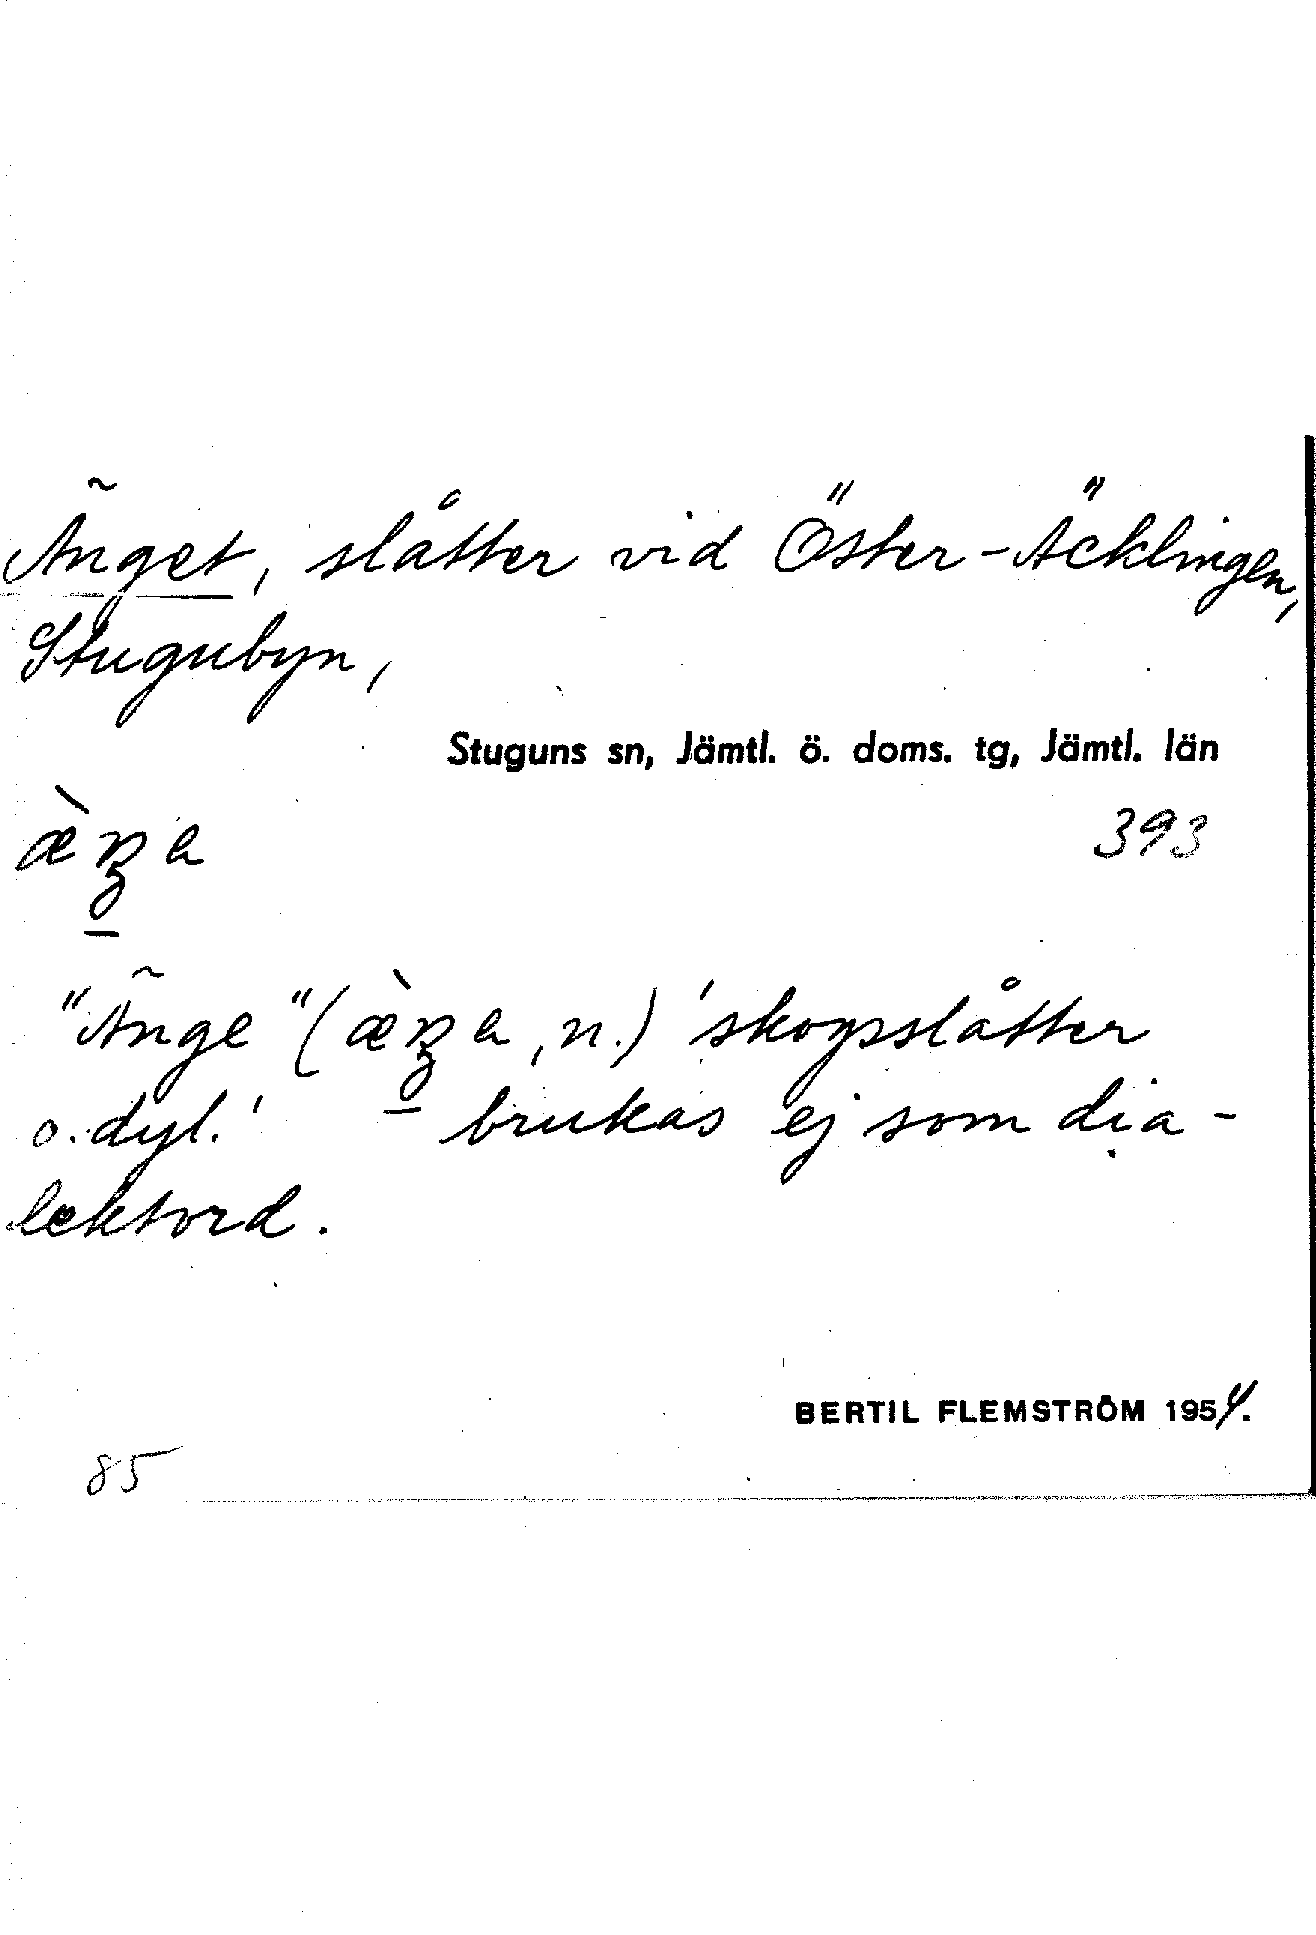 Änget, slåtter vid Öster-Äcklingen,
Stugubyn,
Stuguns sn, Jämtl. ö. doms. tg, Jämtl. län
393
"Änge" ( , n.) 'skogsslåtter
o. dyl.' – brukas ej som dia-
lektord.
BERTIL FLEMSTRÖM 1954.
85